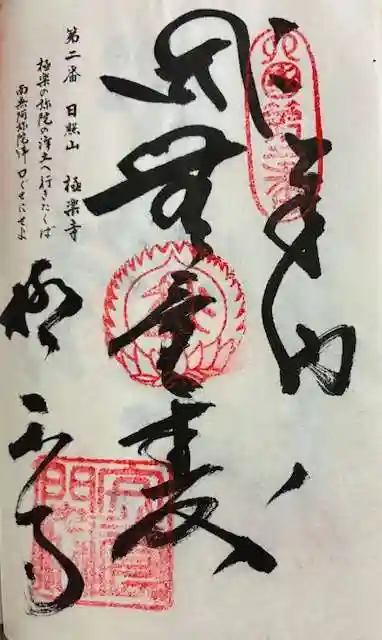 奉納
無量壽
第二番 日照山 極楽寺
極楽の弥陀の浄土へ行きたくば
南無阿弥陀仏口ぐせにせよ
極楽寺